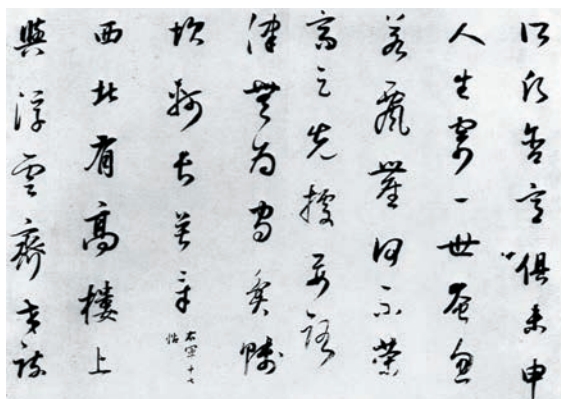 所願含意俱未申
人生寄一世奄忽
若飆塵何不策
高足先據要路
津無為守窮賤
坎軻長苦辛 右軍十七
帖
西北有高樓上
與浮雲齊交疏